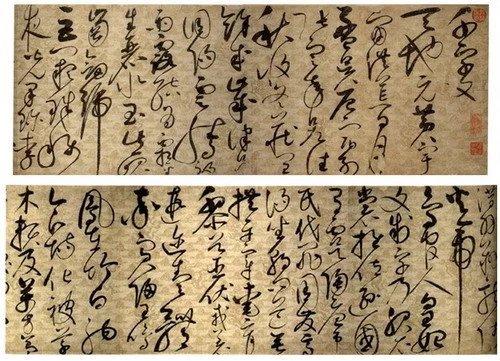 千字文
天地元黄宇
宙洪荒日月
盈昃辰宿列
張寒来暑往
秋收冬藏閏
餘成歲律吕
調陽雲騰致
雨露結為霜金
生麗水玉出崑
岡劍號
巨闕珠稱
夜光果珍李
淡鱗潜羽翔
火帝
鳥官人皇始
制文字乃服衣
裳推位讓國
有虞陶唐弔
民伐罪周發殷
湯坐朝問道垂
拱平章愛育
黎首臣伏戎羌
遐迩壹體
率賓歸王鳴
鳳在竹白駒
食場化被草
木賴及萬方蓋